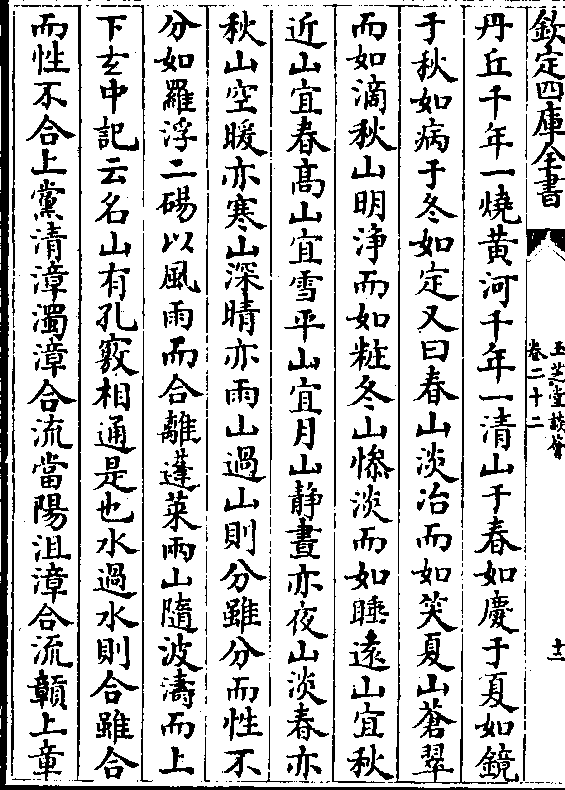 欽定四庫全書
玉芝堂談薈
卷二十二
十二
丹丘千年一燒黄河千年一清山于春如慶于夏如鏡
于秋如病于冬如定又曰春山淡冶而如笑夏山蒼翠
而如滴秋山明浄而如粧冬山慘淡而如睡遠山宜秋
近山宜春高山宜雪平山宜月山静晝亦夜山淡春亦
秋山空暖亦寒山深晴亦雨山過山則分雖分而性不
分如羅浮二碭以風雨而合離蓬萊兩山隨波濤而上
下𤣥中記云名山有孔竅相通是也水過水則合雖合
而性不合上黨清漳濁漳合流當陽沮漳合流贑上章